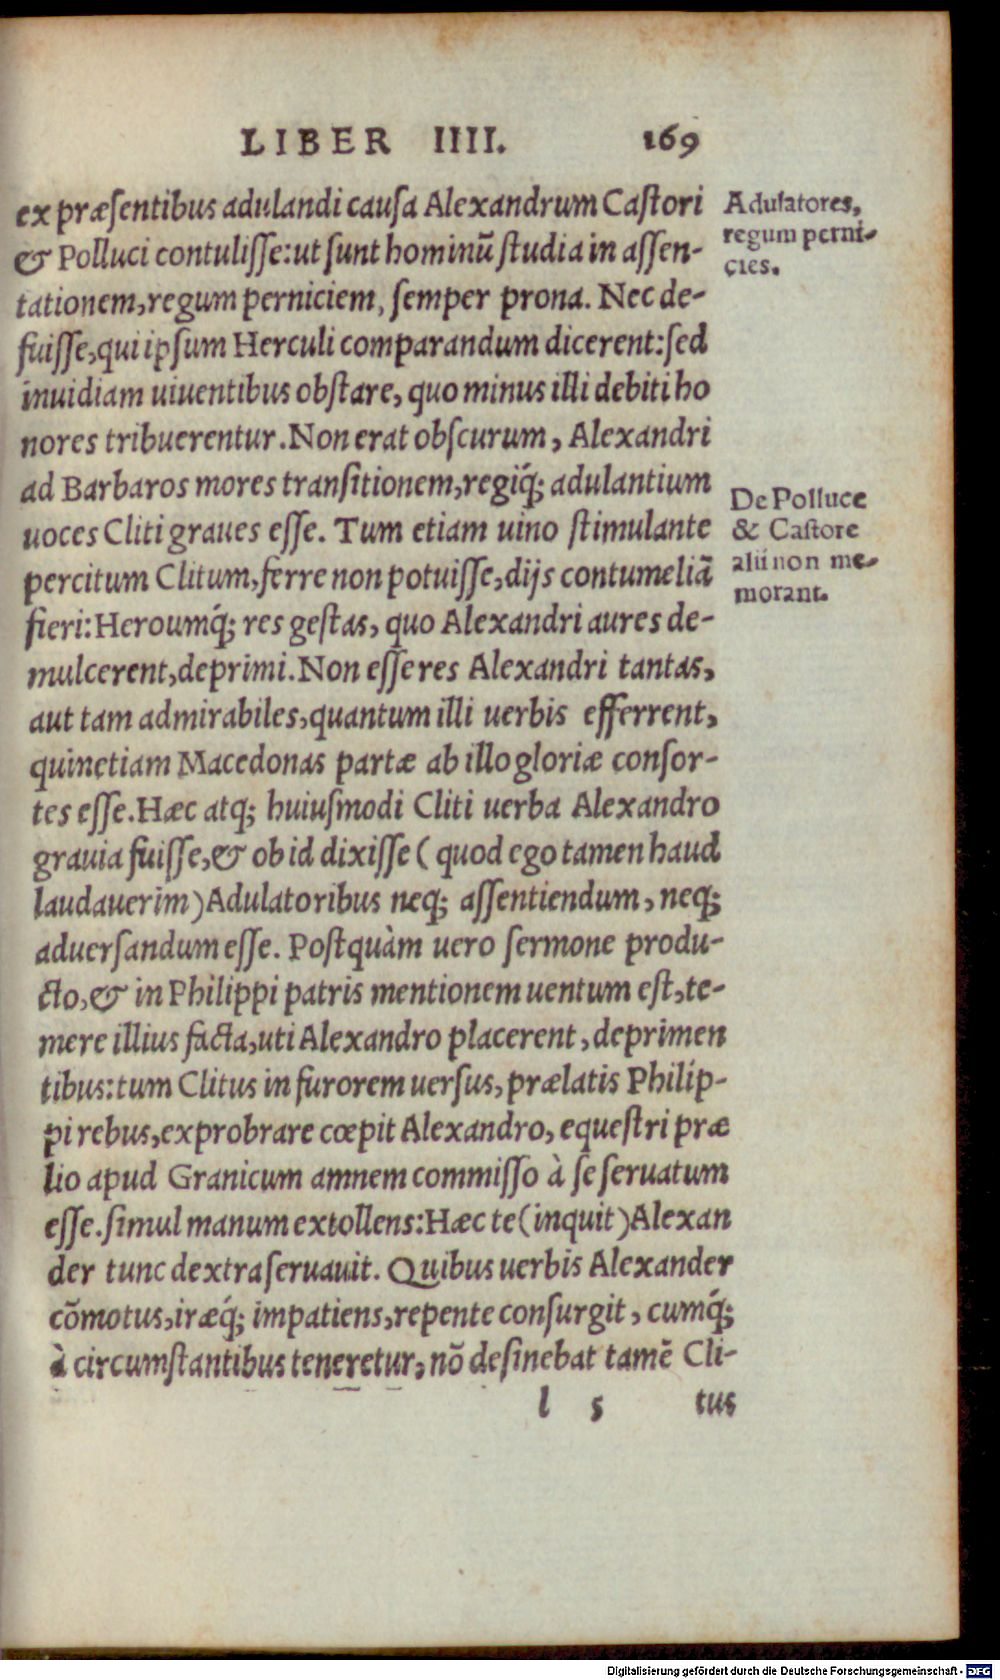 LIBER IIII. 169
ex præsentibus adulandi causa Alexandrum Castori
& Polluci contulisse: ut sunt hominū studia in assen-
tationem, regum perniciem, semper prona. Nec de-
fuisse, qui ipsum Herculi comparandum dicerent: sed
inuidiam uiuentibus obstare, quo minus illi debiti ho
nores tribuerentur. Non erat obscurum, Alexandri
ad Barbaros mores transitionem, regiq́; adulantium
uoces Cliti graues esse. Tum etiam uino stimulante
percitum Clitum, ferre non potuisse, dijs contumeliā
fieri: Heroumq́; res gestas, quo Alexandri aures de-
mulcerent, deprimi. Non esse res Alexandri tantas,
aut tam admirabiles, quantum illi uerbis efferrent,
quinetiam Macedonas partæ ab illo gloriæ consor-
tes esse. Hæc atq; huiusmodi Cliti uerba Alexandro
grauia fuisse, & ob id dixisse ( quod ego tamen haud
laudauerim) Adulatoribus neq; assentiendum, neq;
aduersandum esse. Postquàm uero sermone produ-
cto, & in Philippi patris mentionem uentum est, te-
mere illius facta, uti Alexandro placerent, deprimen
tibus: tum Clitus in furorem uersus, prælatis Philip-
pi rebus, exprobrare cœpit Alexandro, equestri præ
lio apud Granicum amnem commisso à se seruatum
esse. simul manum extollens: Hæc te (inquit) Alexan
der tunc dextra seruauit. Quibus uerbis Alexander
cōmotus, iræq́; impatiens, repente consurgit, cumq́;
à circumstantibus teneretur, nō desinebat tamē Cli-
l 5 tus
Adulatores,
regum perni-
cies.
De Polluce
& Castore
alii non me-
morant.
Digitalisierung gefördert durch die Deutsche Forschungsgemeinschaft - DFG